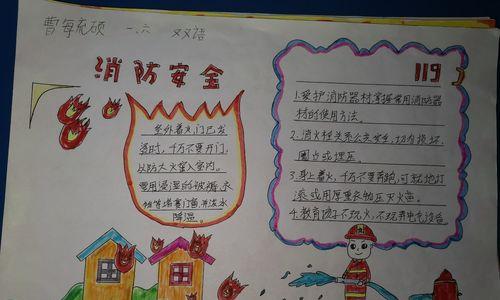 曹每充硕 一、六 双语
消防安全
119
室外着火门已发
烫时，千万不要开门，
以防大火窜入室内。
要用浸湿的被褥、衣
物等堵塞门窗，并泼水
降温。
1.爱护消防器材，掌握常用消防器
材的使用方法。
2.消火栓关系公共安全，切勿损坏、
圈占或埋压。
3.身上着火，千万不要奔跑，可就地打
滚或用厚重衣物压灭火苗。
4.教育孩子不玩火，不玩弄电气设备